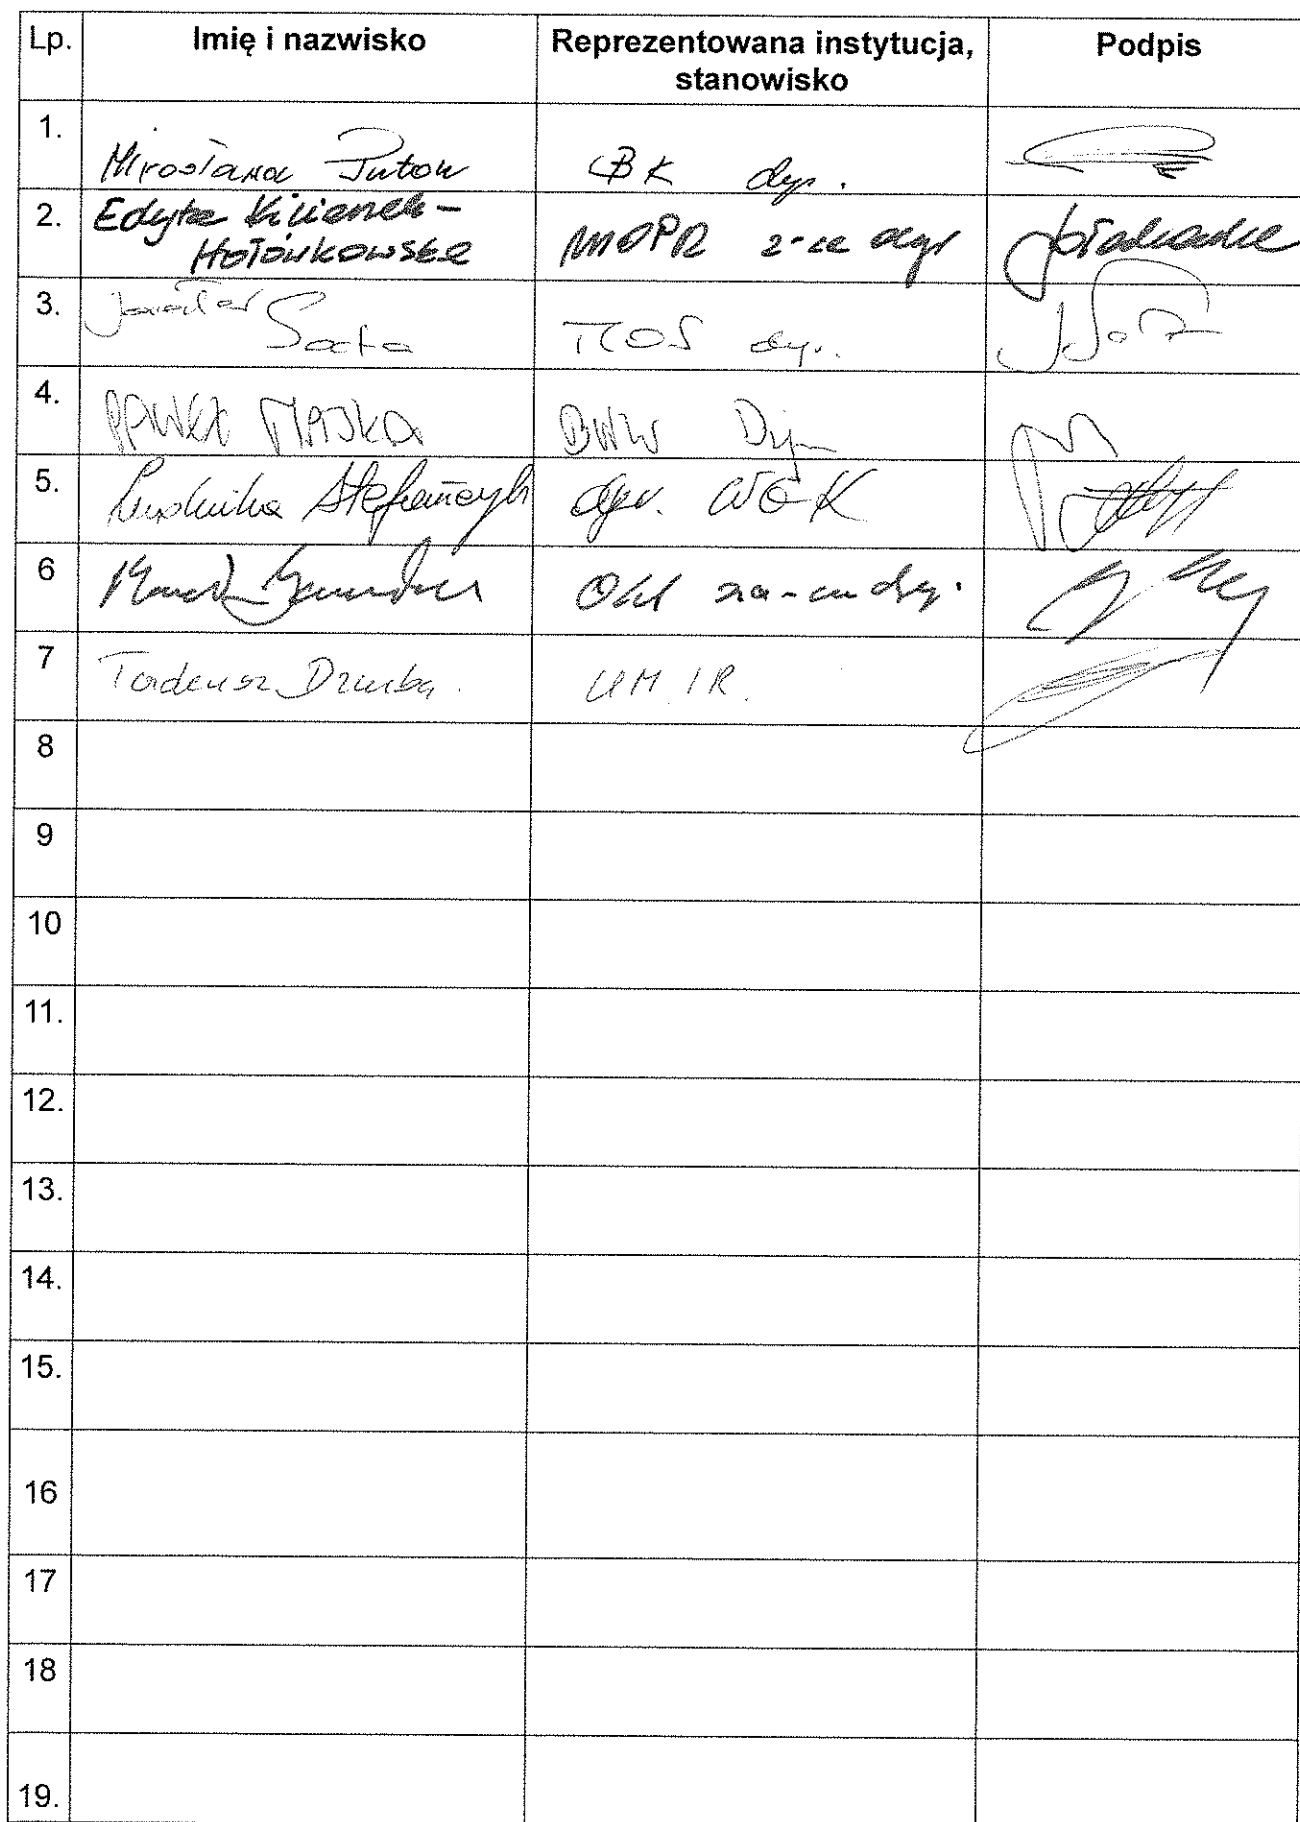 Lp. Imię i nazwisko Reprezentowana instytucja, Podpis
stanowisko
1. Mirosława BK dyr.
2. Edyta Kilianek-
Hołówkowska MOPR z-ca dyr
3. Jarosław
Socha TCOS dyr.
4. PAWEŁ MAJKA BWW Dyr
5. Ludwika Stefańczyk dyr. WOK
6 Marek dyr.
7 Tadeusz Dziuba UM IR.
8
9
10
11.
12.
13.
14.
15.
16
17
18
19.